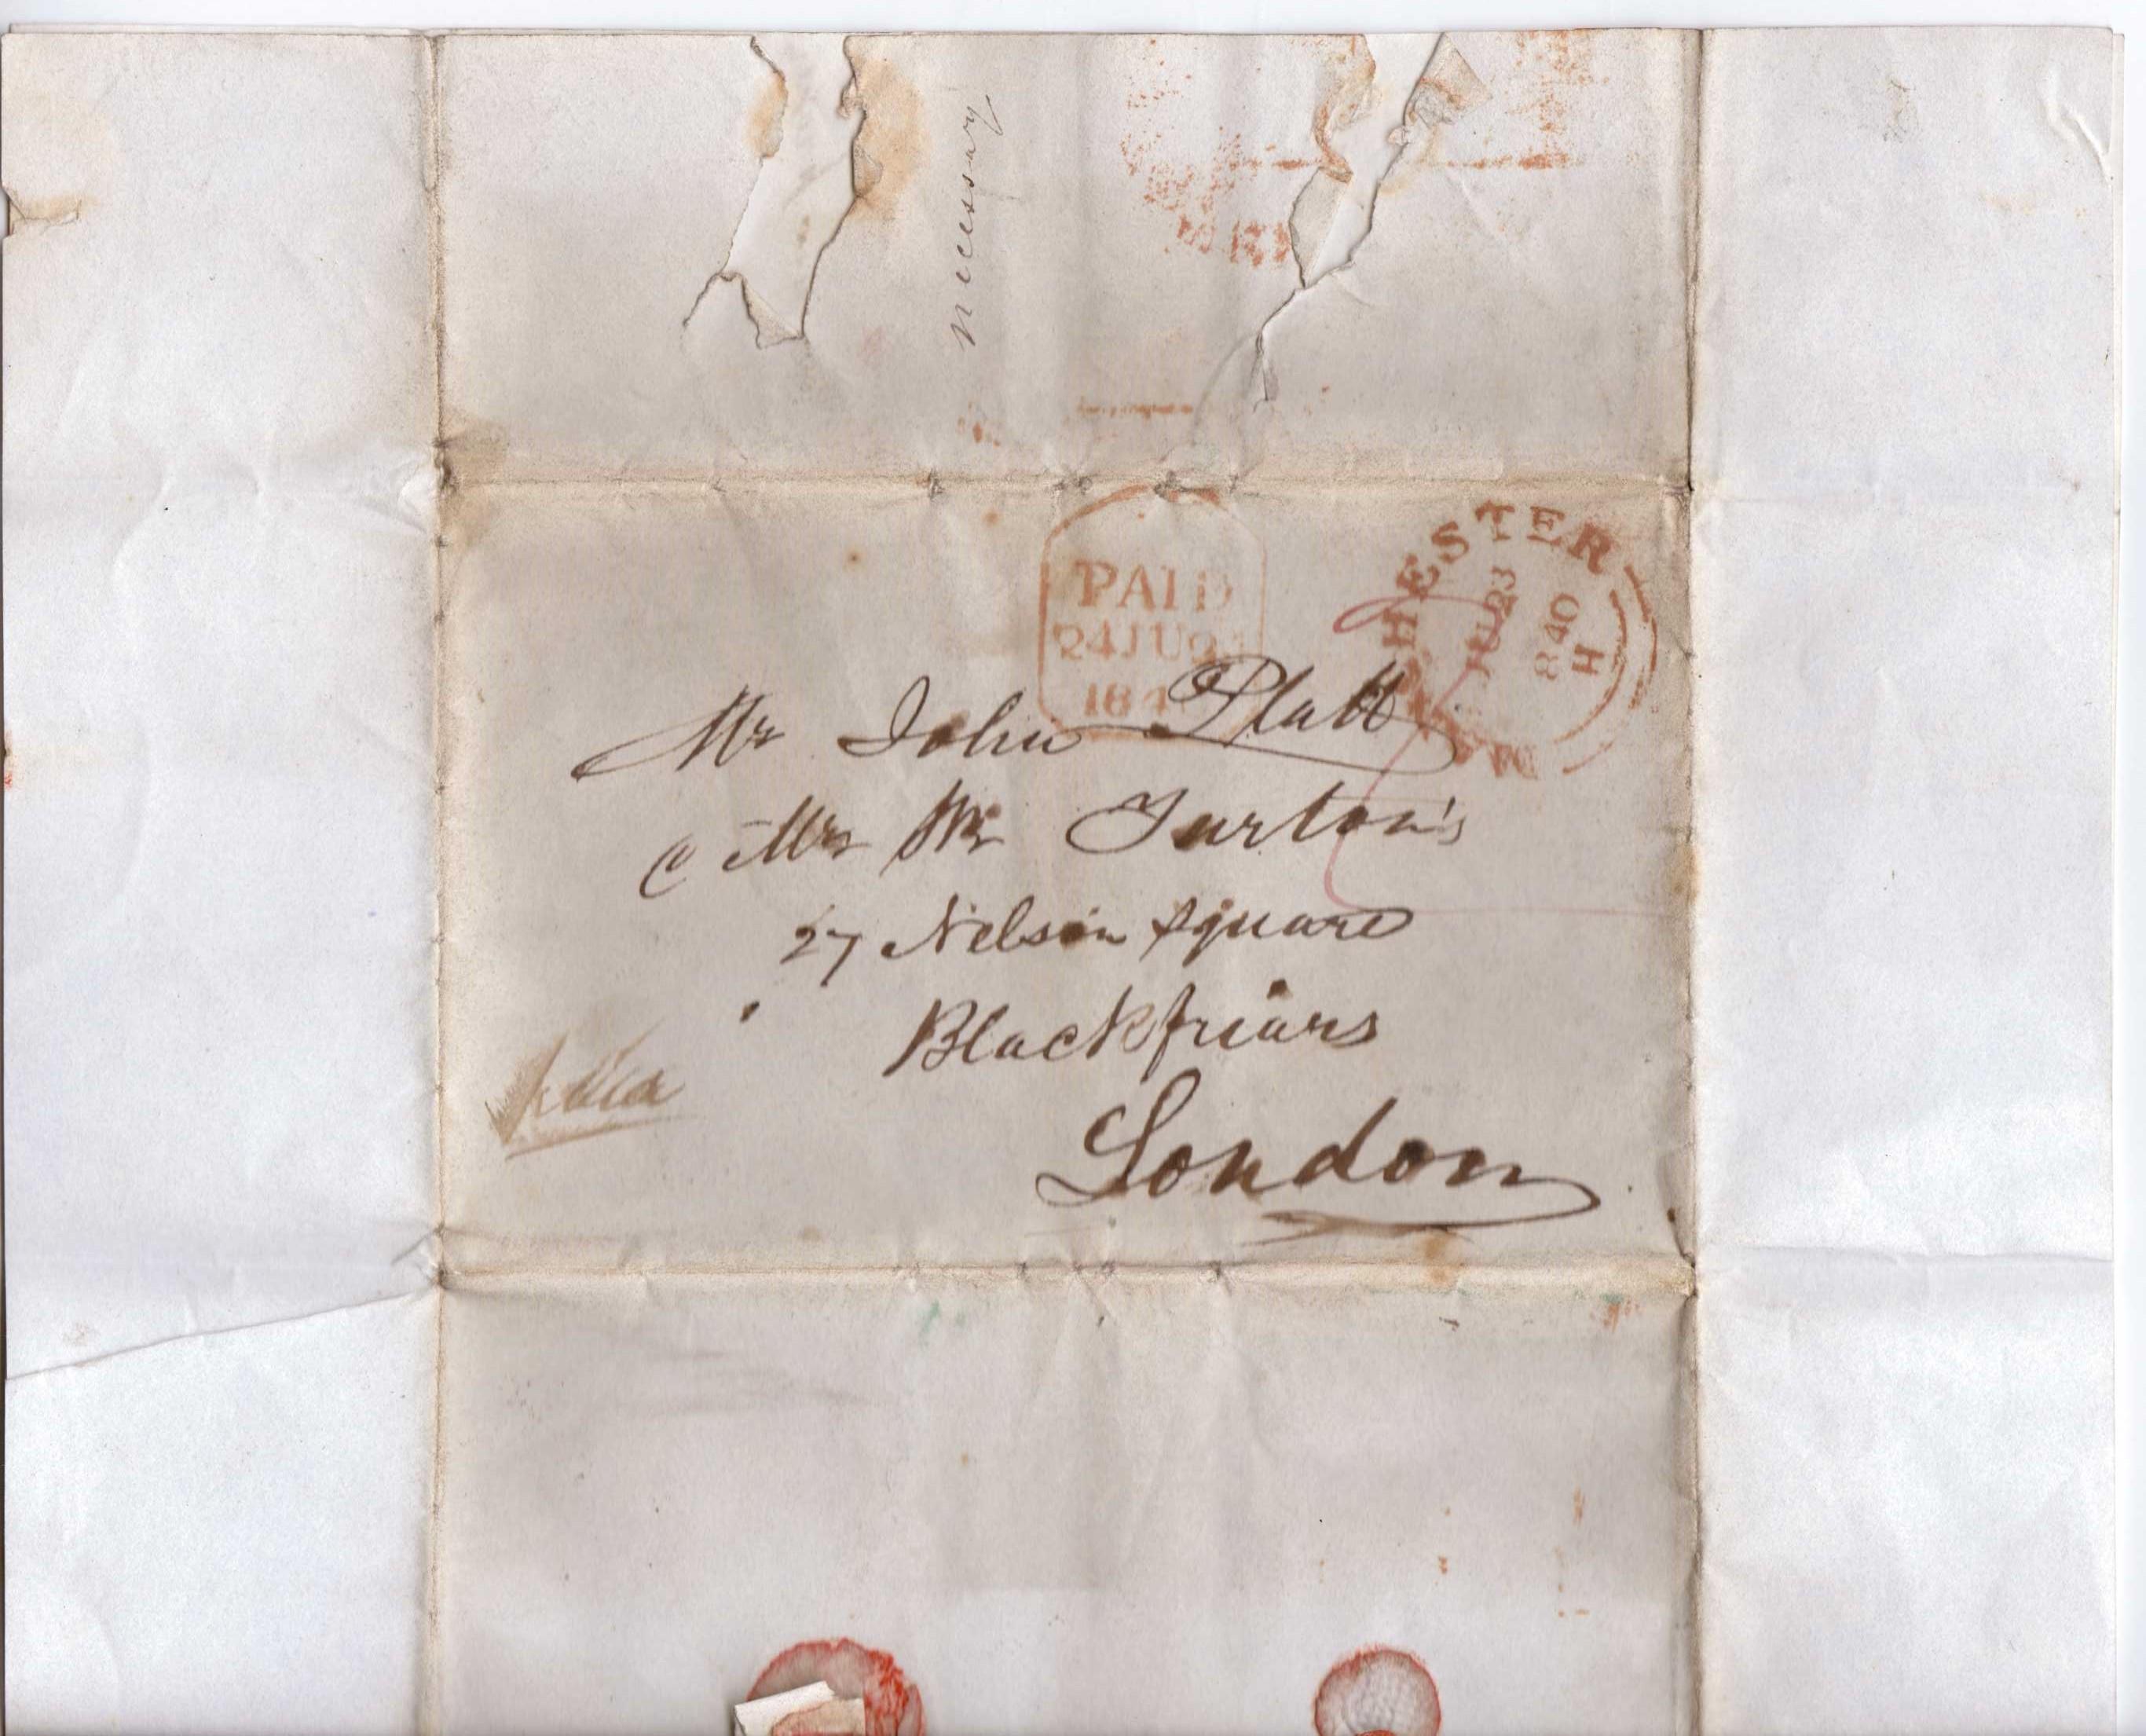 necessary
PAID
24 JU 24
184
MANCHESTER
JU 23
1840
H
Mr John Platt
@ Mrs Wm Turton's
27 Nelson Square
Blackfriars
London